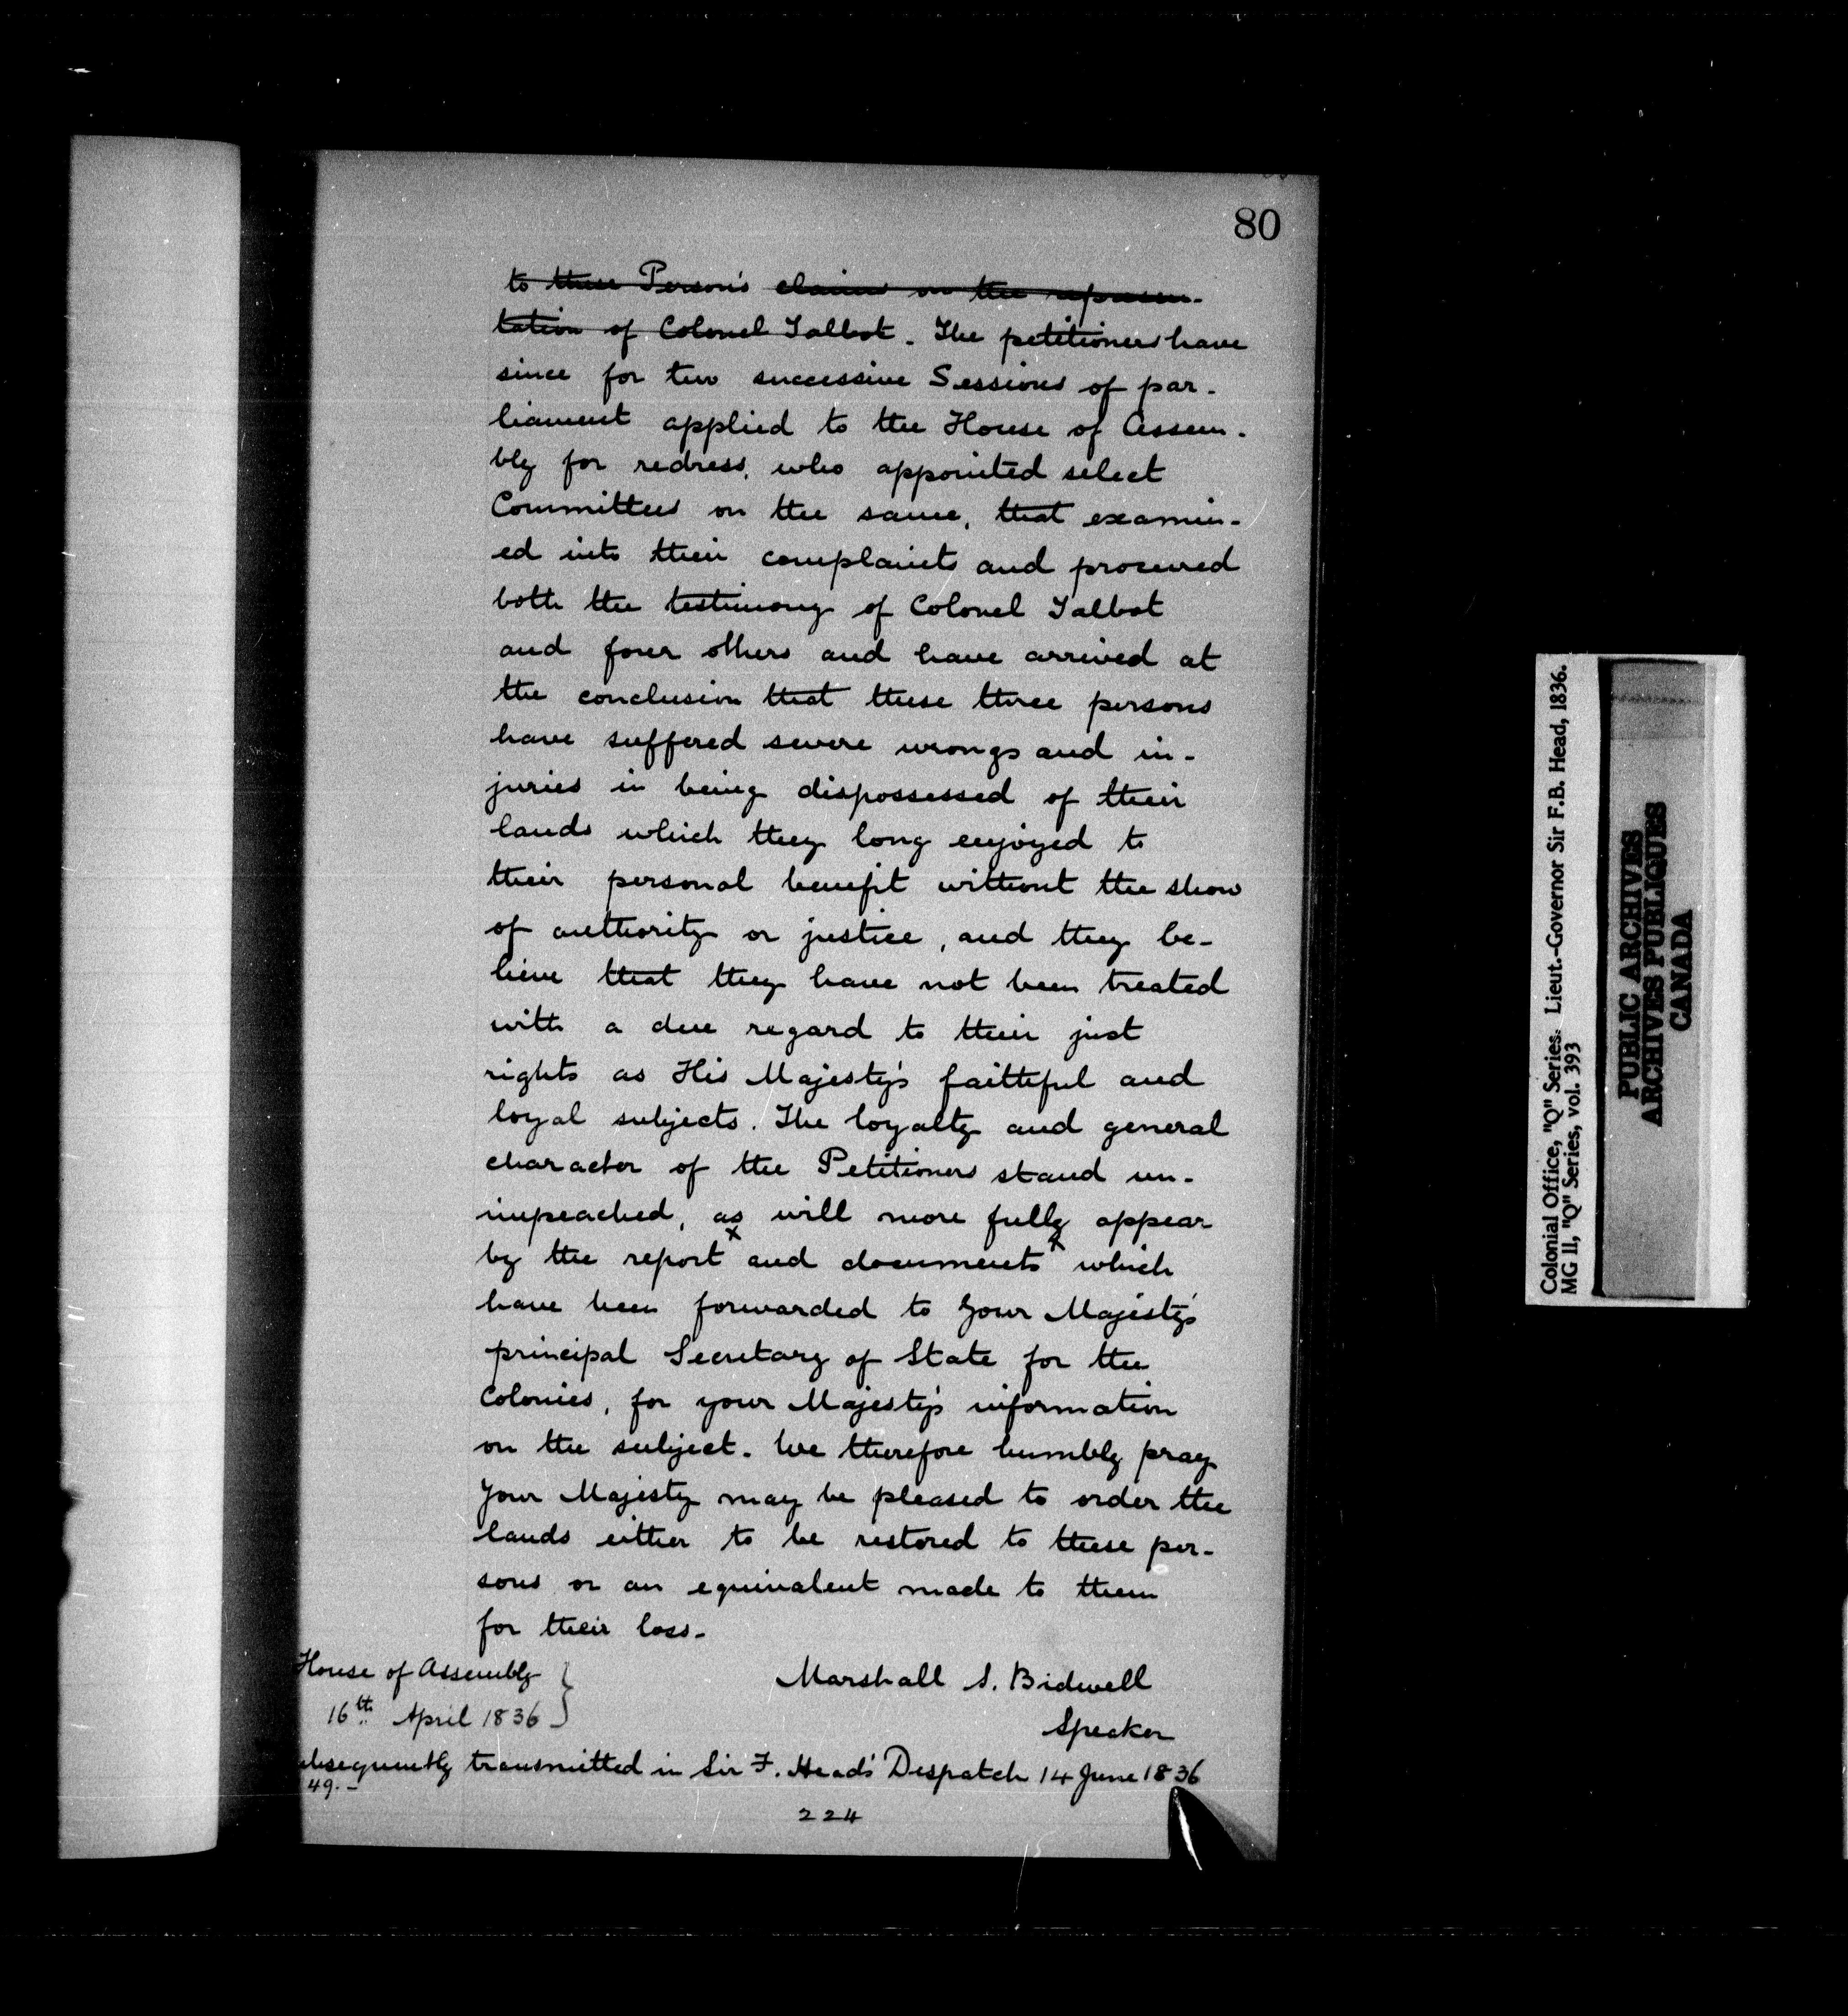 80
to these Person's claims on the represen-
tation of Colonel Talbot. The petitioners have
since for two successive Sessions of par-
liament applied to the House of Assem-
bly for redress, who appointed select
Committees on the same, that examin-
ed into their complaints and procured
both the testimony of Colonel Talbot
and four others and have arrived at
the conclusion that these three persons
have suffered severe wrongs and in-
juries in being dispossessed of their
lands which they long enjoyed to
their personal benefit without the show
of authority or justice, and they be-
lieve that they have not been treated
with a due regard to their just
rights as His Majesty's faithful and
loyal subjects. The loyalty and general
character of the Petitioners stand un-
impeached, as will more fully appear
by the report x and documents x which
have been forwarded to Your Majesty's
principal Secretary of State for the
Colonies, for your Majesty's information
on the subject. We therefore humbly pray
Your Majesty may be pleased to order the
lands either to be restored to these per-
sons or an equivalent made to them
for their loss.
House of Assembly
16th April 1836
Marshall S. Bidwell
Speaker
ubsequently transmitted in Sir F. Head's Despatch 14 June 1836
49.-
224
Colonial Office, "Q" Series. Lieut.-Governor Sir F.B. Head, 1836.
MG 11, "Q" Series, vol. 393
PUBLIC ARCHIVES
ARCHIVES PUBLIQUES
CANADA